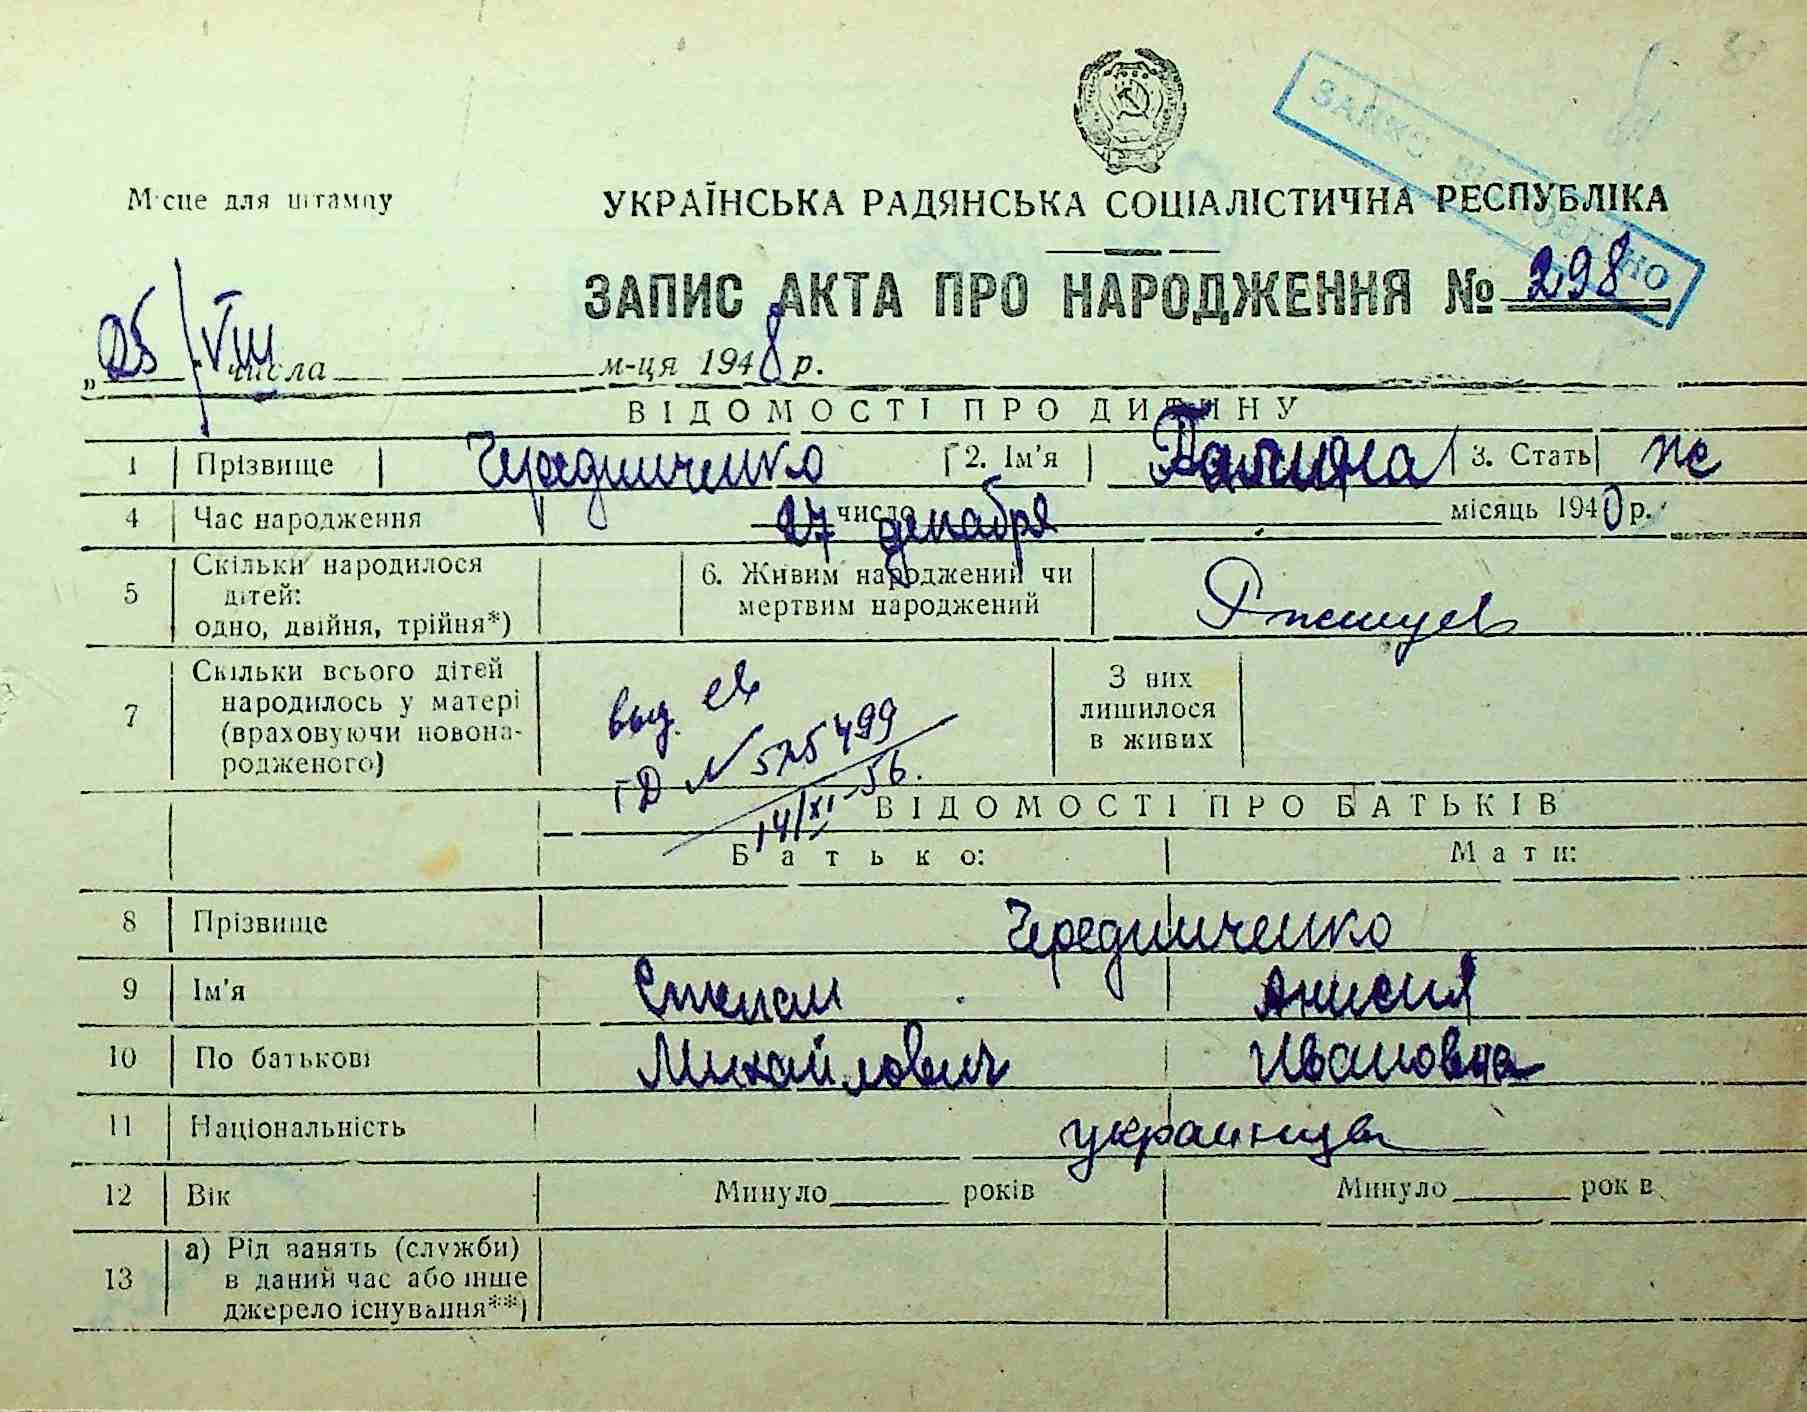 ЗАЙКО ВІ
Місце для штампу
УКРАЇНСЬКА РАДЯНСЬКА СОЦІАЛІСТИЧНА РЕСПУБЛІКА
ЗАПИС АКТА ПРО НАРОДЖЕННЯ № 298
„25/VIII числа м-ця 1948 р.
ВІДОМОСТІ ПРО ДИТИНУ
1 Прізвище Чередниченко 2. Ім'я Галина 3. Стать ж
4 Час народження 27 число декабря місяць 1940 р.
5 Скільки народилося дітей: одно, двійня, трійня*) 6. Живим народжений чи мертвим народжений
7 Скільки всього дітей народилось у матері (враховуючи новонародженого) З них лишилося в живих
выд. св
ГД № 525499
14/XI-56.
ВІДОМОСТІ ПРО БАТЬКІВ
Батько: Мати:
8 Прізвище Чередниченко
9 Ім'я Степан Анисия
10 По батькові Михайлович Ивановна
11 Національність украинцы
12 Вік Минуло років Минуло років
13 а) Рід занять (служби) в даний час або інше джерело існування**)